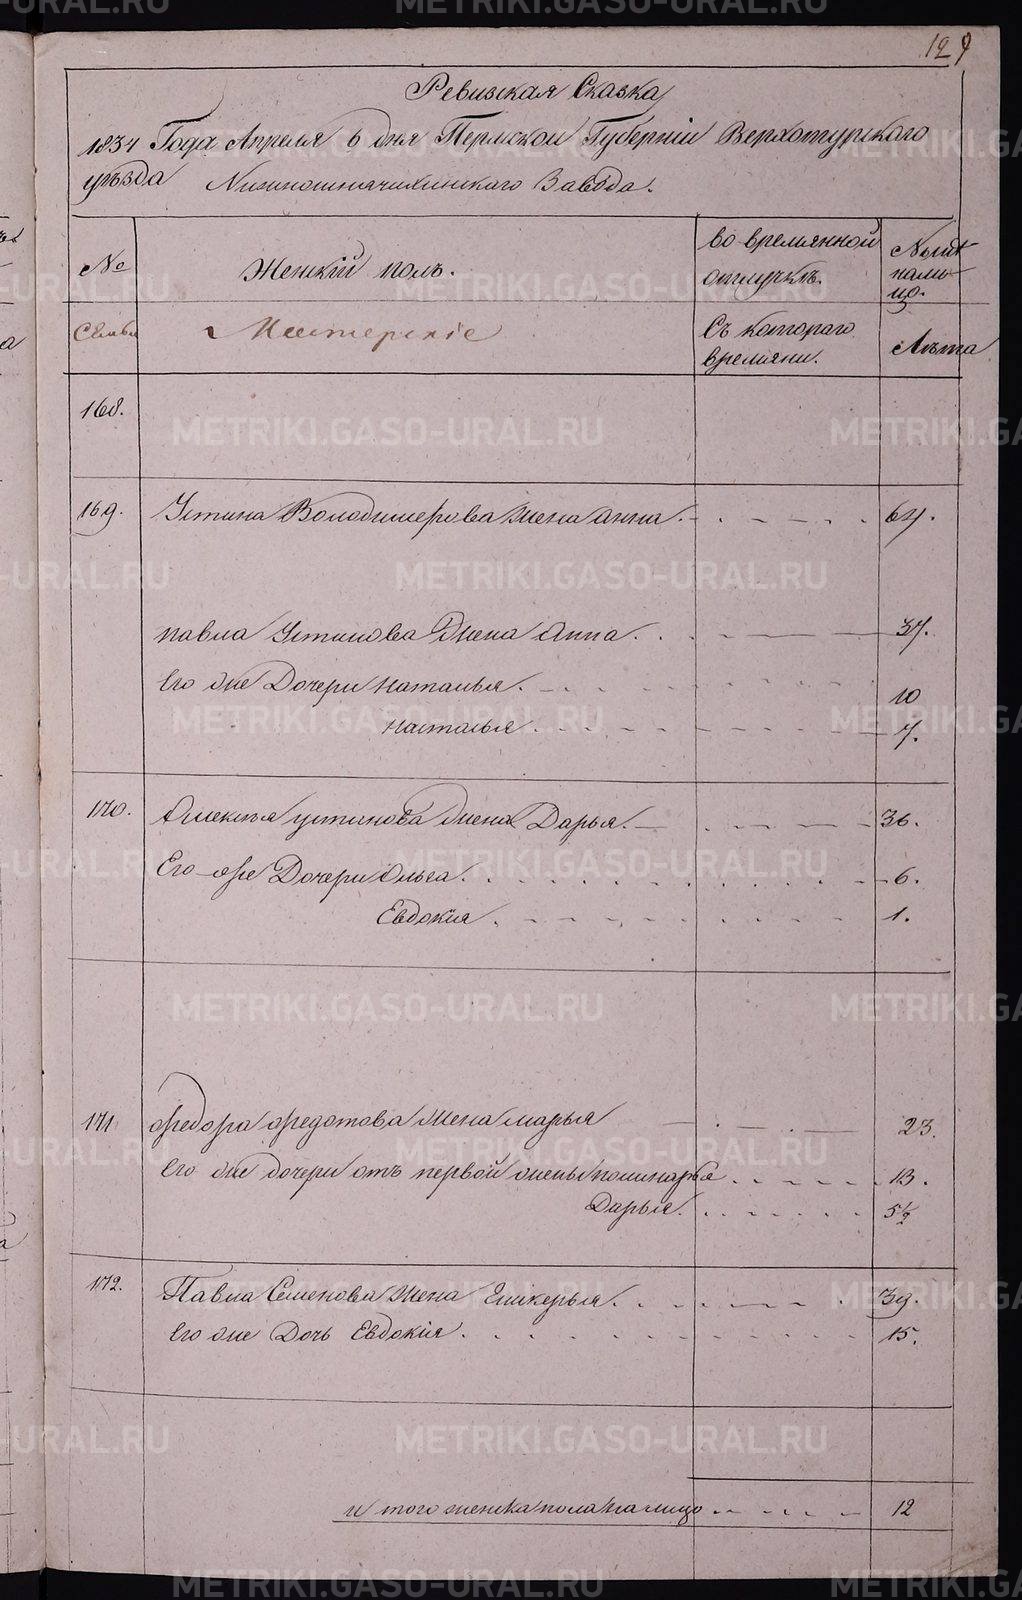 129
Ревизская Сказка
1834 Года Апреля 6 дня Пермской Губерніи Верхотурского
уѣзда Нижношначихинского Завода.
№ Женскій полъ. во времянной отлучкѣ. Нынѣ налицо.
Семьи Мастерскіе Съ котораго времяни. Лѣта
168.
169. Устина Володимерова жена анна 64.
павла Устинова жена Анна 37.
Его же Дочери Наталья. 10
Настасья 7.
170. Алексѣя устинова жена Дарья. 36.
Его же Дочери Ольга. 6.
Евдокія 1.
171 Федора Федотова Жена марья 23.
Его же дочери отъ первой жены 13.
Дарья. 5½
172. Павла Семенова Жена 39.
Его же Дочь Евдокія. 15.
и того женска пола на лицо 12
METRIKI.GASO-URAL.RU